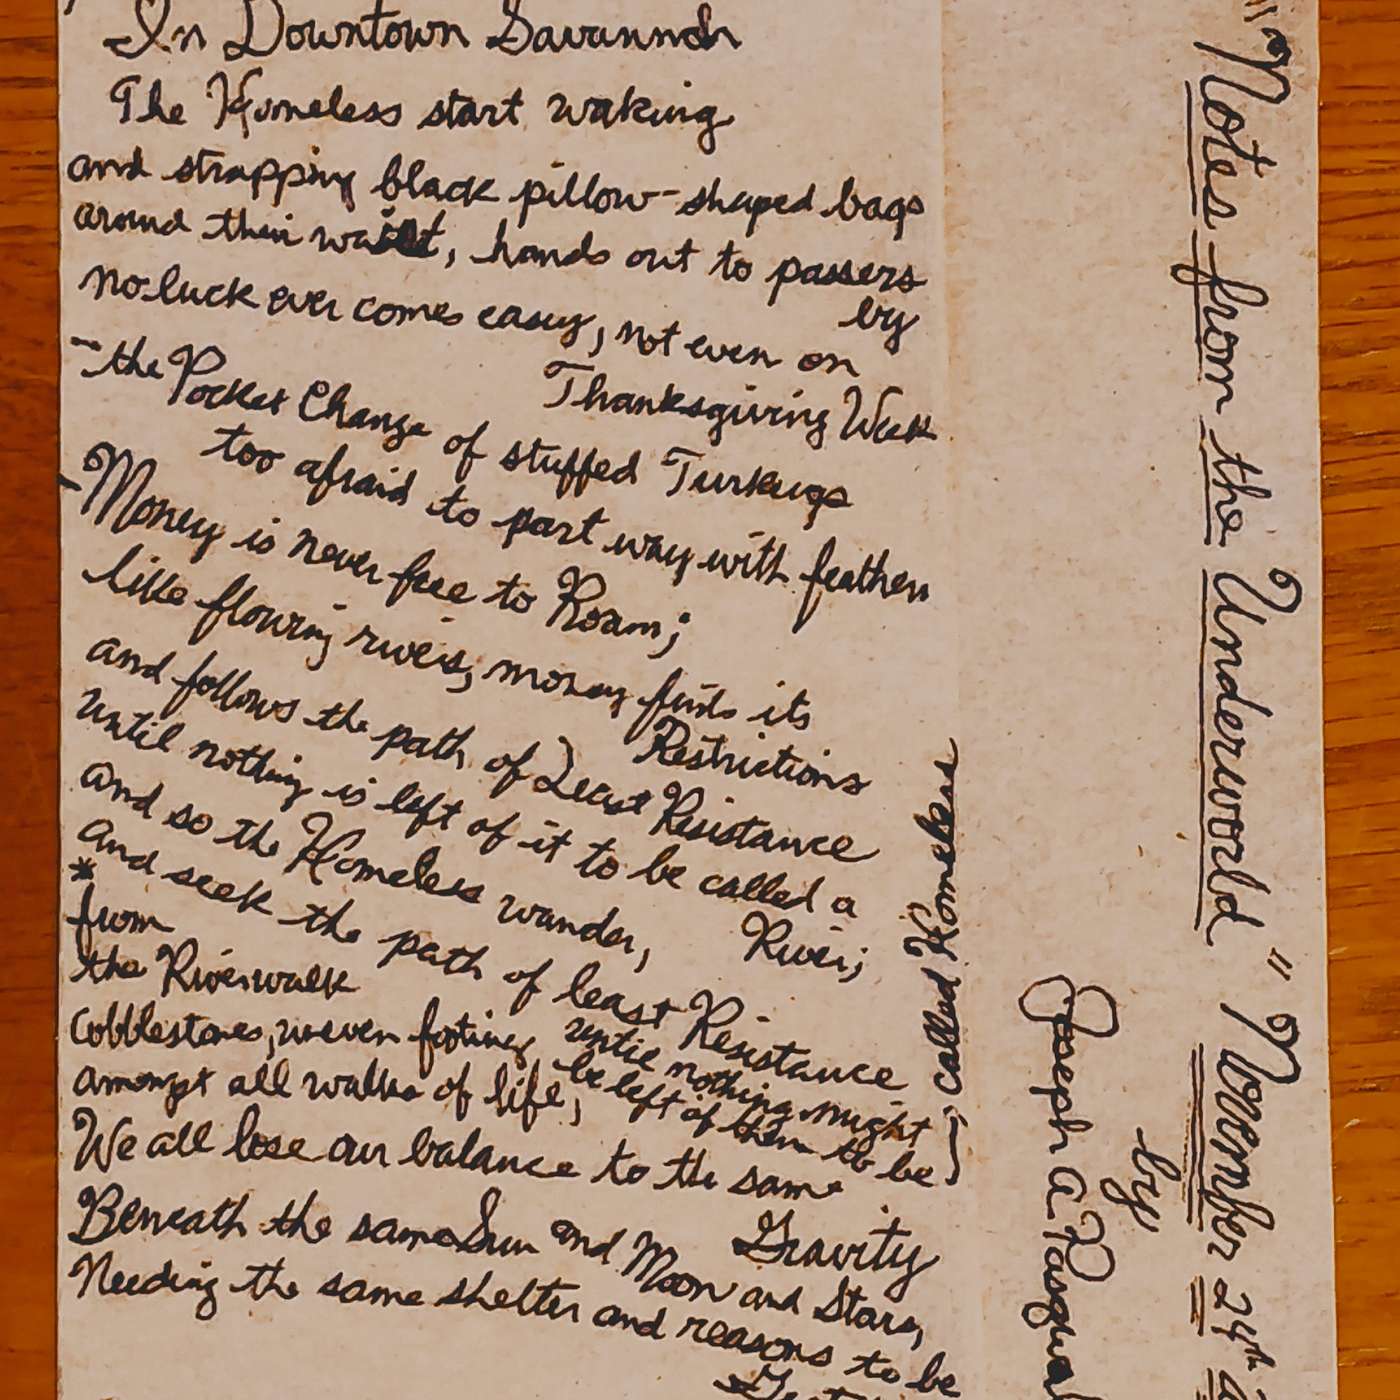 In Downtown Savannah
The Homeless start waking
and strapping black pillow-shaped bags
around their waist, hands out to passers
by
no luck ever comes easy, not even on
Thanksgiving Week
- the Pocket Change of stuffed Turkeys
too afraid to part way with feathers
- Money is never free to Roam;
like flowing rivers, money finds its
Restrictions
and follows the path of Least Resistance
until nothing is left of it to be called a
River;
and so the Homeless wander,
and seek the path of least Resistance
until nothing might
be left of them to be
called Homeless
* from
the Riverwalk
Cobblestones, uneven footing
amongst all walks of life,
We all lose our balance to the same
Gravity
Beneath the same Sun and Moon and Stars,
Needing the same shelter and reasons to be
"Notes from the Underworld" November 24th
by
Joseph A Pasquale